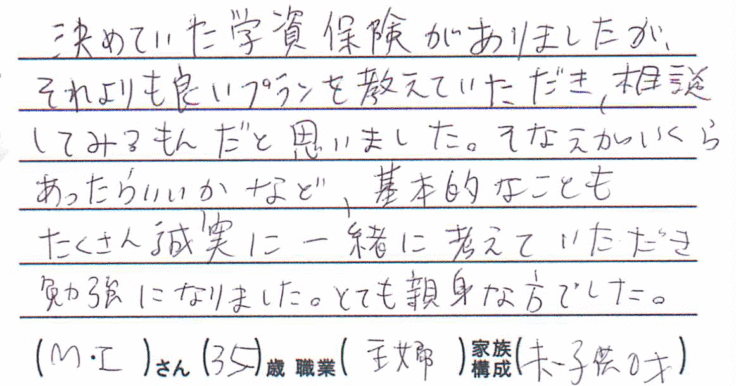 決めていた学資保険がありましたが、
それよりも良いプランを教えていただき、相談
してみるもんだと思いました。そなえがいくら
あったらいいかなど、基本的なことも
たくさん誠実に一緒に考えていただき
勉強になりました。とても親身な方でした。
(M・I)さん(35)歳 職業(主婦)家族構成(夫・子供0才)